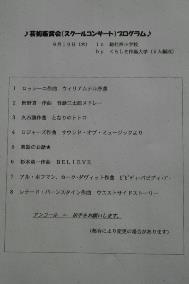 ♪芸術鑑賞会(スクールコンサート)プログラム♪
1 ロッシーニ作曲 ウィリアムテル序曲
2 服部 作曲 メドレー
3 久石譲作曲 となりのトトロ
4 ロジャース作曲 サウンド・オブ・ミュージックより
5 楽器のお話★
6 杉本竜一作曲 BELIEVE
7 アル・ホフマン、マーク・デヴィット作曲 ビビディ・バビディ・
8 レナード・バーンスタイン作曲 ウエストサイドストーリー
アンコール ー 拍手をお願いします。
(都合により変更の場合があります)